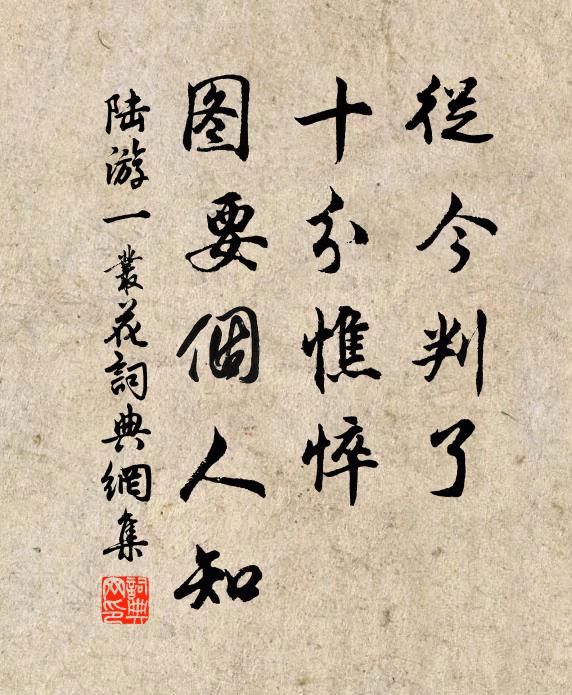 從今判了
十分憔悴
图要個人知
陆游一叢花詞典網集
詞典网印